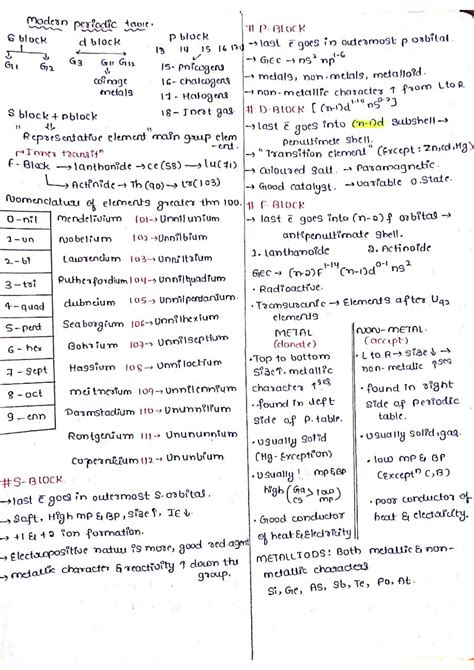 Modern periodic table.
S block
d block
P block
G1 G2
G3 G11 G12
13 14 15 16 17 18
coinage
metals
15- Pnicogens
16- chalcogens
17- Halogens
18- Inert gas
S block + pblock
"Representative element" main group element.
Inner transit
f-Block → lanthonide → ce(58) → lu(71)
→ Actinide → Th(90) → lr(103)
Nomenclatuu of elements greater thn 100.
0-nil
1-un
2-bi
3-tri
4-quad
5-pent
6-hex
7-sept
8-oct
9-enn
Mendelivium 101→Unnilunium
Nobelium 102→Unnilbium
Lawrencium 103→Unniltrium
Rutherfordium 104→Unnilquadium
dubneium 105→Unnilpentanium
Seaborgium 106→Unnilhexium
Bohrium 107→Unnilseptium
Hassium 108→Unniloctium
meitnerium 109→Unnilennium
Darmstadium 110→Ununnilium
Rontgenium 111→Unununnium
Copernicium 112→Ununbium
#S-BLOCK
→last e goes in outermost S-orbital.
→ Soft, High MP & BP, Size↑, IE↓
→ +1 & +2 ion formation.
→ Electropositive natuu is more, good red agent
→ metallic character & reactivity ↑ down the group.
# P-BLOCK
→last e goes in outermost p orbital.
→ GEC → ns² np¹⁻⁶
→ metals, non-metals, metalloid.
→ non-metallic character ↑ from L to R
# D-BLOCK [(n-1)d¹⁻¹⁰ ns⁰⁻²]
→last e goes into (n-1)d subshell→
penultimate shell.
→ "Transition element" (Except: Zn, Cd, Hg)
→ Coloured Salt. → Paramagnetic.
→ Good catalyst. → variable O.State.
# F-BLOCK
→ last e goes into (n-2)f orbitas →
antipenultimate shell.
1. lanthanoide 2. Actinoide
GEC → (n-2)f¹⁻¹⁴ (n-1)d⁰⁻¹ ns²
• Radioactive.
• Transuranic → Elements after U92
elements
METAL
(donate)
• Top to bottom
Size↑, metallic
character ↑ses
• found in left
side of P.table.
• usually solid
(Hg-Exception)
• usually! mp&BP
high (Ga Cs > low mp)
• Good conductor
of heat & Electricity
NON-METAL.
(accept)
• L to R → Size↓ →
non-metallic ↑ses
• found in right
side of Periodic
table.
• usually solid, gas.
• low mp & BP
(Except C, B)
• poor conductor of
heat & electricity.
METALLTODS: Both metallic & non-
metallic characters
Si, Ge, AS, Sb, Te, Po, At.